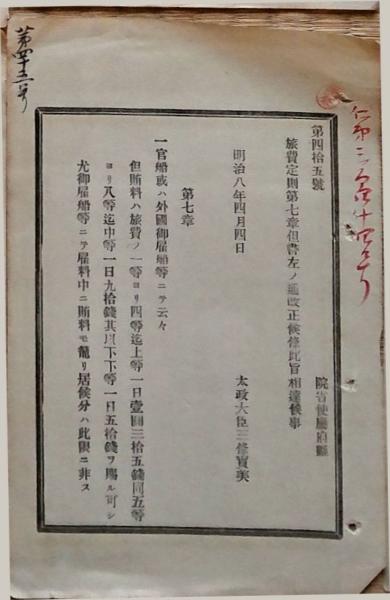 第四拾五號
院省使廳府縣
旅費定則第七章但書左ノ通改正候條此旨相達候事
明治八年四月四日
太政大臣三條實美
第七章
一官船或ハ外國御雇船等ニテ云々
但賄料ハ旅費ノ一等ヨリ四等迄上等一日壹圓三拾五錢同五等
ヨリ八等迄中等一日九拾錢其以下下等一日五拾錢ヲ賜ル可シ
尤御雇船等ニテ雇料中ニ賄料モ籠リ居候分ハ此限ニ非ス